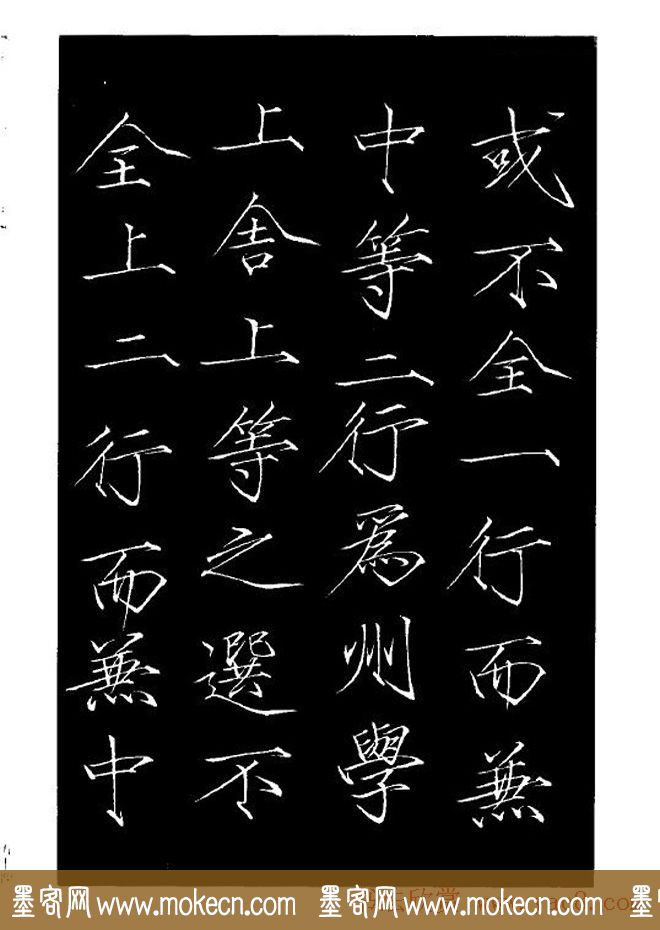 或不全一行而兼
中等二行為州學
上舍上等之選不
全上二行而兼中
墨客网 www.mokecn.com 墨客网 www.mokecn.com 墨客网